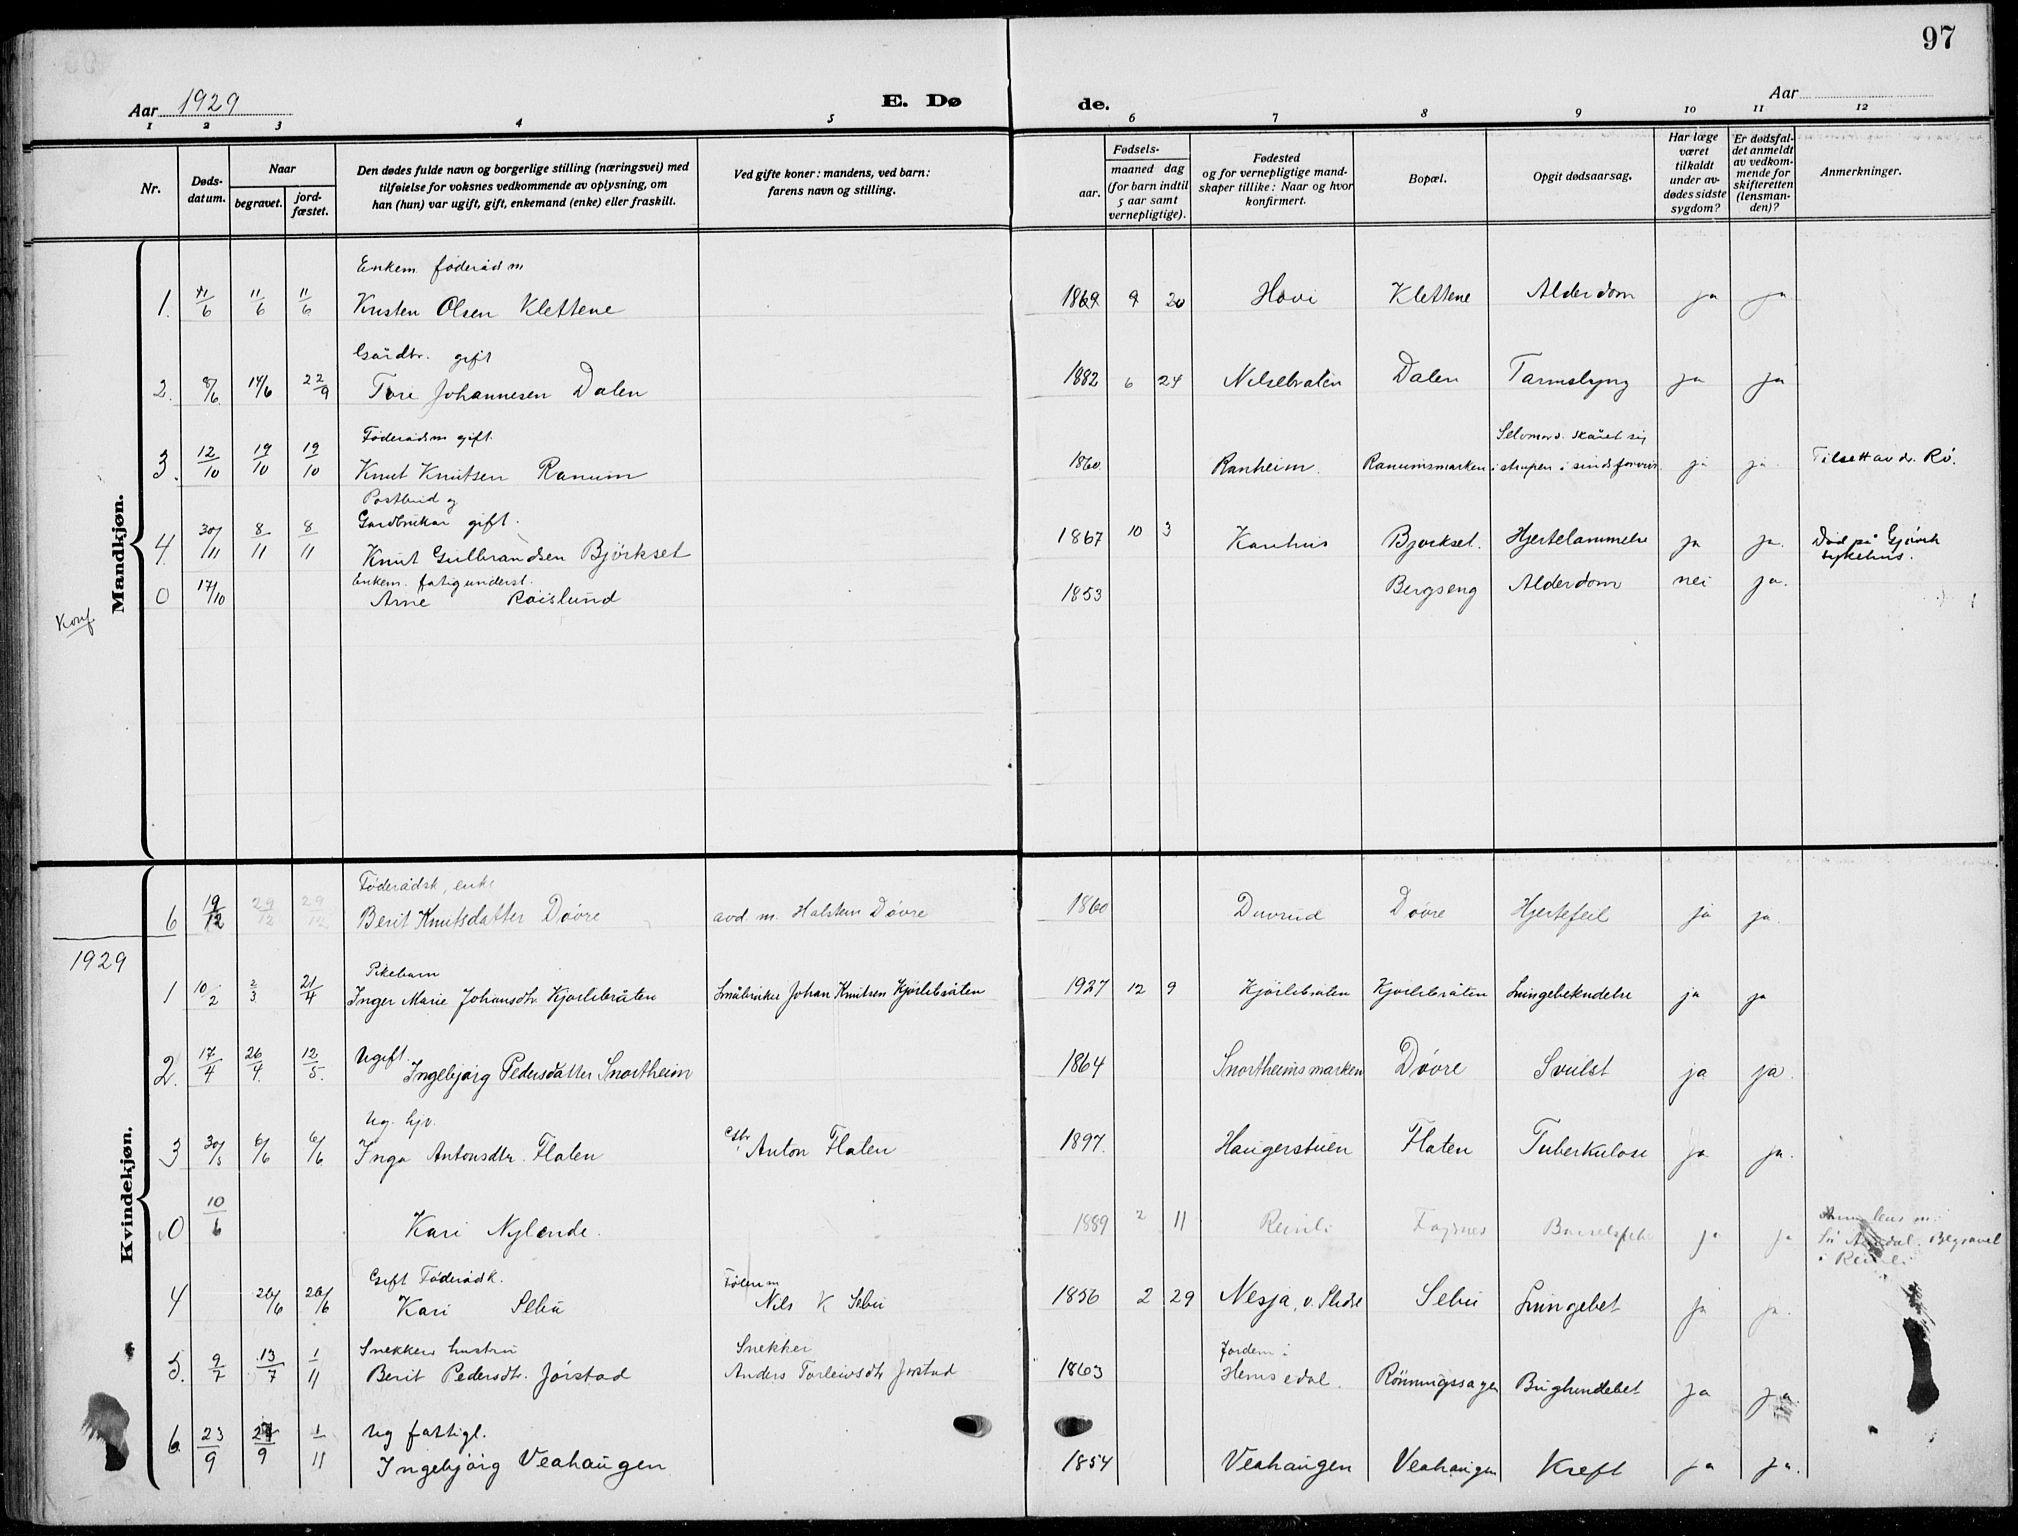 97
Aar 1929
E. Dø
de.
Aar
1 2 3 4 5 6 7 8 9 10 11 12
Nr.
Døds-
datum.
Naar
begravet.
jord-
fæstet.
Den dødes fulde navn og borgerlige stilling (næringsvei) med
tilføielse for voksnes vedkommende av oplysning, om
han (hun) var ugift, gift, enkemand (enke) eller fraskilt.
Ved gifte koner: mandens, ved barn:
farens navn og stilling.
Fødsels-
aar.
maaned dag
(for barn indtil
5 aar samt
vernepligtige).
Fødested
og for vernepligtige mand-
skaper tillike: Naar og hvor
konfirmert.
Bopæl.
Opgit dødsaarsag.
Har læge
været
tilkaldt
under av-
dødes sidste
sygdom?
Er dødsfal-
det anmeldt
av vedkom-
mende for
skifteretten
(lensman-
den)?
Anmerkninger.
Mandkjøn.
Enkem føderådm
1. 11/6 11/6 Kristen Olsen Klettene 1869 9 20 Hovi Klettene Alderdom ja ja
Gårdbr. gift
2. 8/6 14/6 22/9 Tore Johannesen Dalen 1882 6 24 Nilsebråten Dalen Tarmslyng ja ja
Føderådsm gift. Selvmord. skåret sig
3. 12/10 19/10 19/10 Knut Knutsen Ranum 1860 Ranheim. Ranumsmarken i strupen i ja ja. Tilsett av dr. Rø.
Postbud og
Gardbrukar gift.
4. 30/11 8/11 8/11 Knut Gulbrandsen Bjørkset 1867 10 3 Kanhus Bjørkset. Hjertelammelse ja ja. Død på Gjøvik
sykehus.
Enkem. fatigunderst.
0 17/10 Arne Røislund 1853 Bergseng Alderdom nei ja.
Konf
Kvindekjøn.
Føderådsk, enke
6 19/12 29/12 29/12 Berit Knutsdatter Døvre avd m. Halsten Døvre 1860 Duvrud Døvre Hjertefeil ja ja.
1929
Pikebarn
1 10/2 2/3 21/4 Inger Marie Johansdtr Kjørlibråten Småbruker Johan Knutsen Kjørlibråten 1927 12 9 Kjørlibråten Kjørlibråten Lungebetendelse ja ja
Ugift.
2. 17/4 26/4. 12/5. Ingebjørg Pedersdatter Snortheim 1864 Snortheimsmarken Døvre Svulst ja ja.
Ug. hjv.
3 30/5 6/6 6/6 Inga Antonsdtr. Flaten Anton Flaten 1897. Haugerstuen Flaten Tuberkulose ja ja.
0 10/6 Kari Nylende. 1889 2 11 Reinli Fagernes ja ja Begravet
i Reinli
Gift Føderådk.
4 26/6 26/6 Kari Sebu Nils K Sebu 1856 2 29 Nesja, v. Slidre Sebu Lungebet ja ja.
Snekkers hustru Snekker Fordem i
5. 9/7 13/7 1/11 Berit Pedersdtr. Jørstad Anders Jørstad 1863 Hemsedal. Rönningssagen Bughindebet ja ja
Ug fattigl.
6 23/9 9 1/11 Ingebjørg Veahaugen 1854 Veahaugen Veahaugen Kreft ja ja.